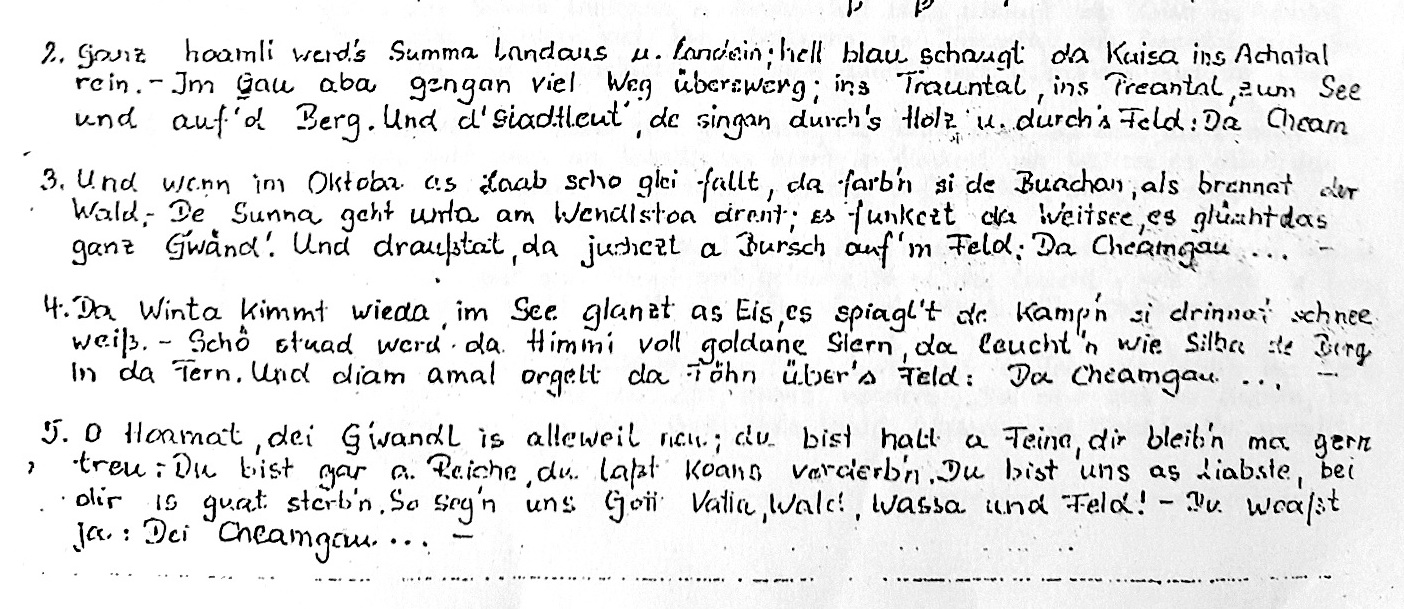 2. Ganz hoamli werd's Summa landaus u. landein; hell blau schaugt da Kaisa ins Achatal
rein. - Im Gau aba gengan viel Weg überzwerg; ins Trauntal, ins Preantal, zum See
und auf'd Berg. Und d'Stadtleut', de singan durch's Holz u. durch's Feld: Da Cheam
3. Und wenn im Oktoba as Laab scho glei fallt, da farb'n si de Buachan, als brennat der
Wald,- De Sunna geht unta am Wendlstoa drent; es funkezt da Weitsee, es glüaht das
ganz Gwånd! Und draußtat, da juchezt a Bursch auf'm Feld: Da Cheamgau ... -
4. Da Winta kimmt wieda, im See glanzt as Eis, es spiagl't de Kamp'n si drinnat schnee
weiß. - Schö stuad werd da Himmi voll goldane Stern, da leucht'n wie Silba de Berg
in da Fern. Und diam amal orgelt da Föhn über's Feld: Da Cheamgau ... -
5. O Hoamat, dei Gwandl is alleweil neu; du bist halt a Feine, dir bleib'n ma gern
treu: Du bist gar a Reiche, du laßt koans verderb'n. Du bist uns as Liabste, bei
dir is guat sterb'n. So seg'n uns Gott Vatta, Wald, Wassa und Feld! - Du woaßt
ja: Dei Cheamgau ... -